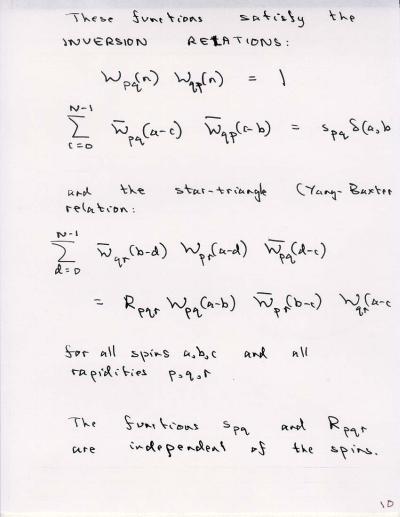 These functions satisfy the
INVERSION RELATIONS:
W_pq(n) W_qp(n) = 1
∑_{c=0}^{N-1} W̄_pq(a-c) W̄_qp(c-b) = s_pq δ(a,b
and the star-triangle (Yang-Baxter
relation:
∑_{d=0}^{N-1} W̄_qr(b-d) W_pr(a-d) W̄_pq(d-c)
= R_pqr W_pq(a-b) W̄_pr(b-c) W_qr(a-c
for all spins a,b,c and all
rapidities p,q,r
The functions s_pq and R_pqr
are independent of the spins.
10